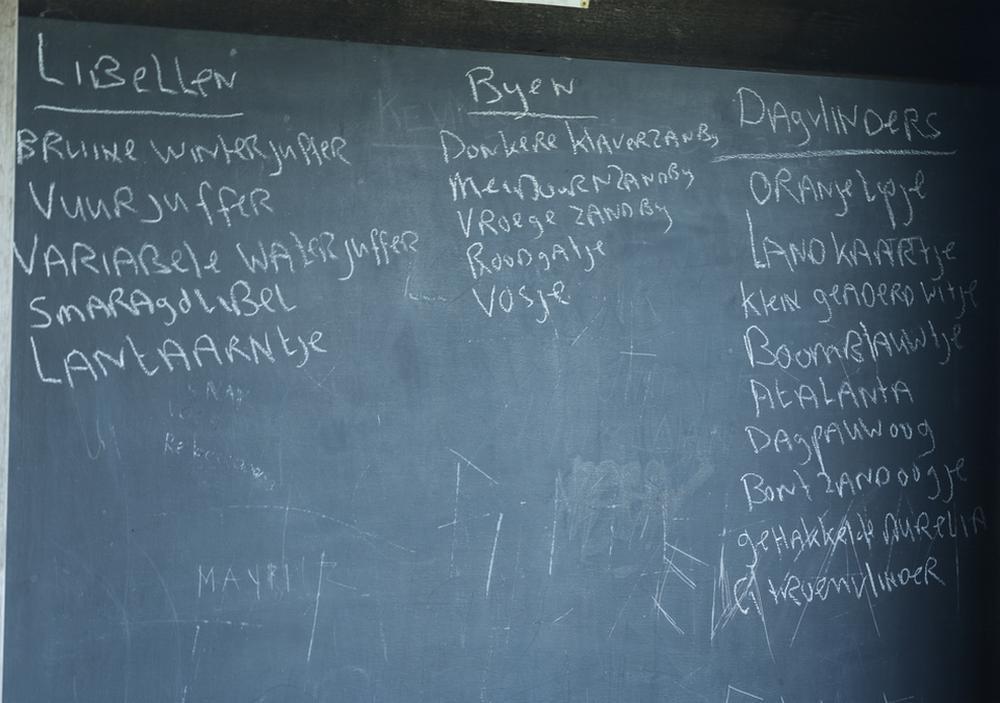 LIBELLEN
BRUINE WINTERJUFFER
VUURJUFFER
VARIABELE WATERJUFFER
SMARAGDLIBEL
LANTAARNTJE
MAYRII
Byen
Donkere klaverzandby
Meidoornzandby
Vroege zandby
Roodgatje
Vosje
Dagvlinders
Oranjetipje
Landkaartje
klein geaderd witje
Boomblauwtje
Atalanta
Dagpauwoog
Bont zandoogje
gehakkelde Aurelia
Citroenvlinder